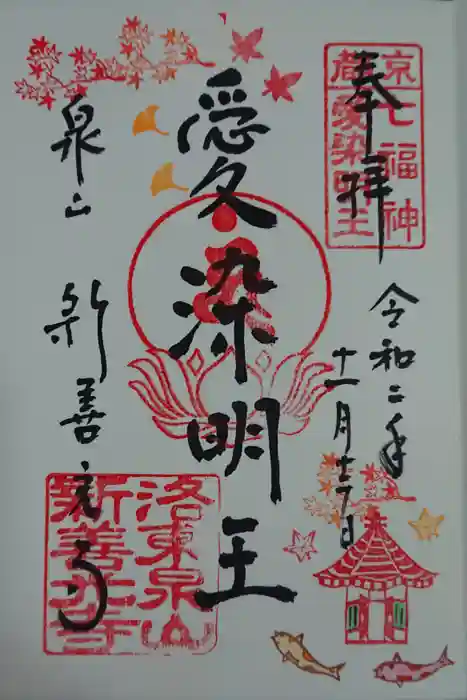 奉拝
京都
七福神
愛染明王
令和二年
十一月十七日
愛染明王
泉山
新善光寺
洛東泉山
新善光寺